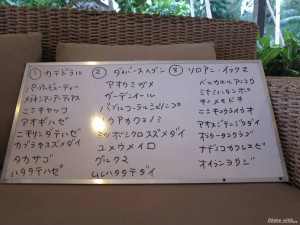 ① カテドラル
パープルビューティー
メラネシアンアンティアス
ニシキヤッコ
アオギハゼ
ニチリンダテハゼ
カブラヤスズメダイ
タカサゴ
ハタタテハゼ
② ダイバーズヘブン
アオウミガメ
ガーデンイール
バブルコーラルシュリンプ
ハナヒゲウツボ
ミツボシクロスズメダイ
ユメウメイロ
グルクマ
ムレハタタテダイ
③ ソロアニ・イックマ
キンメモドキ
アオスジテンジクダイ
オラウータンクラブ
ナデシコカクレエビ
オイランヨウジ